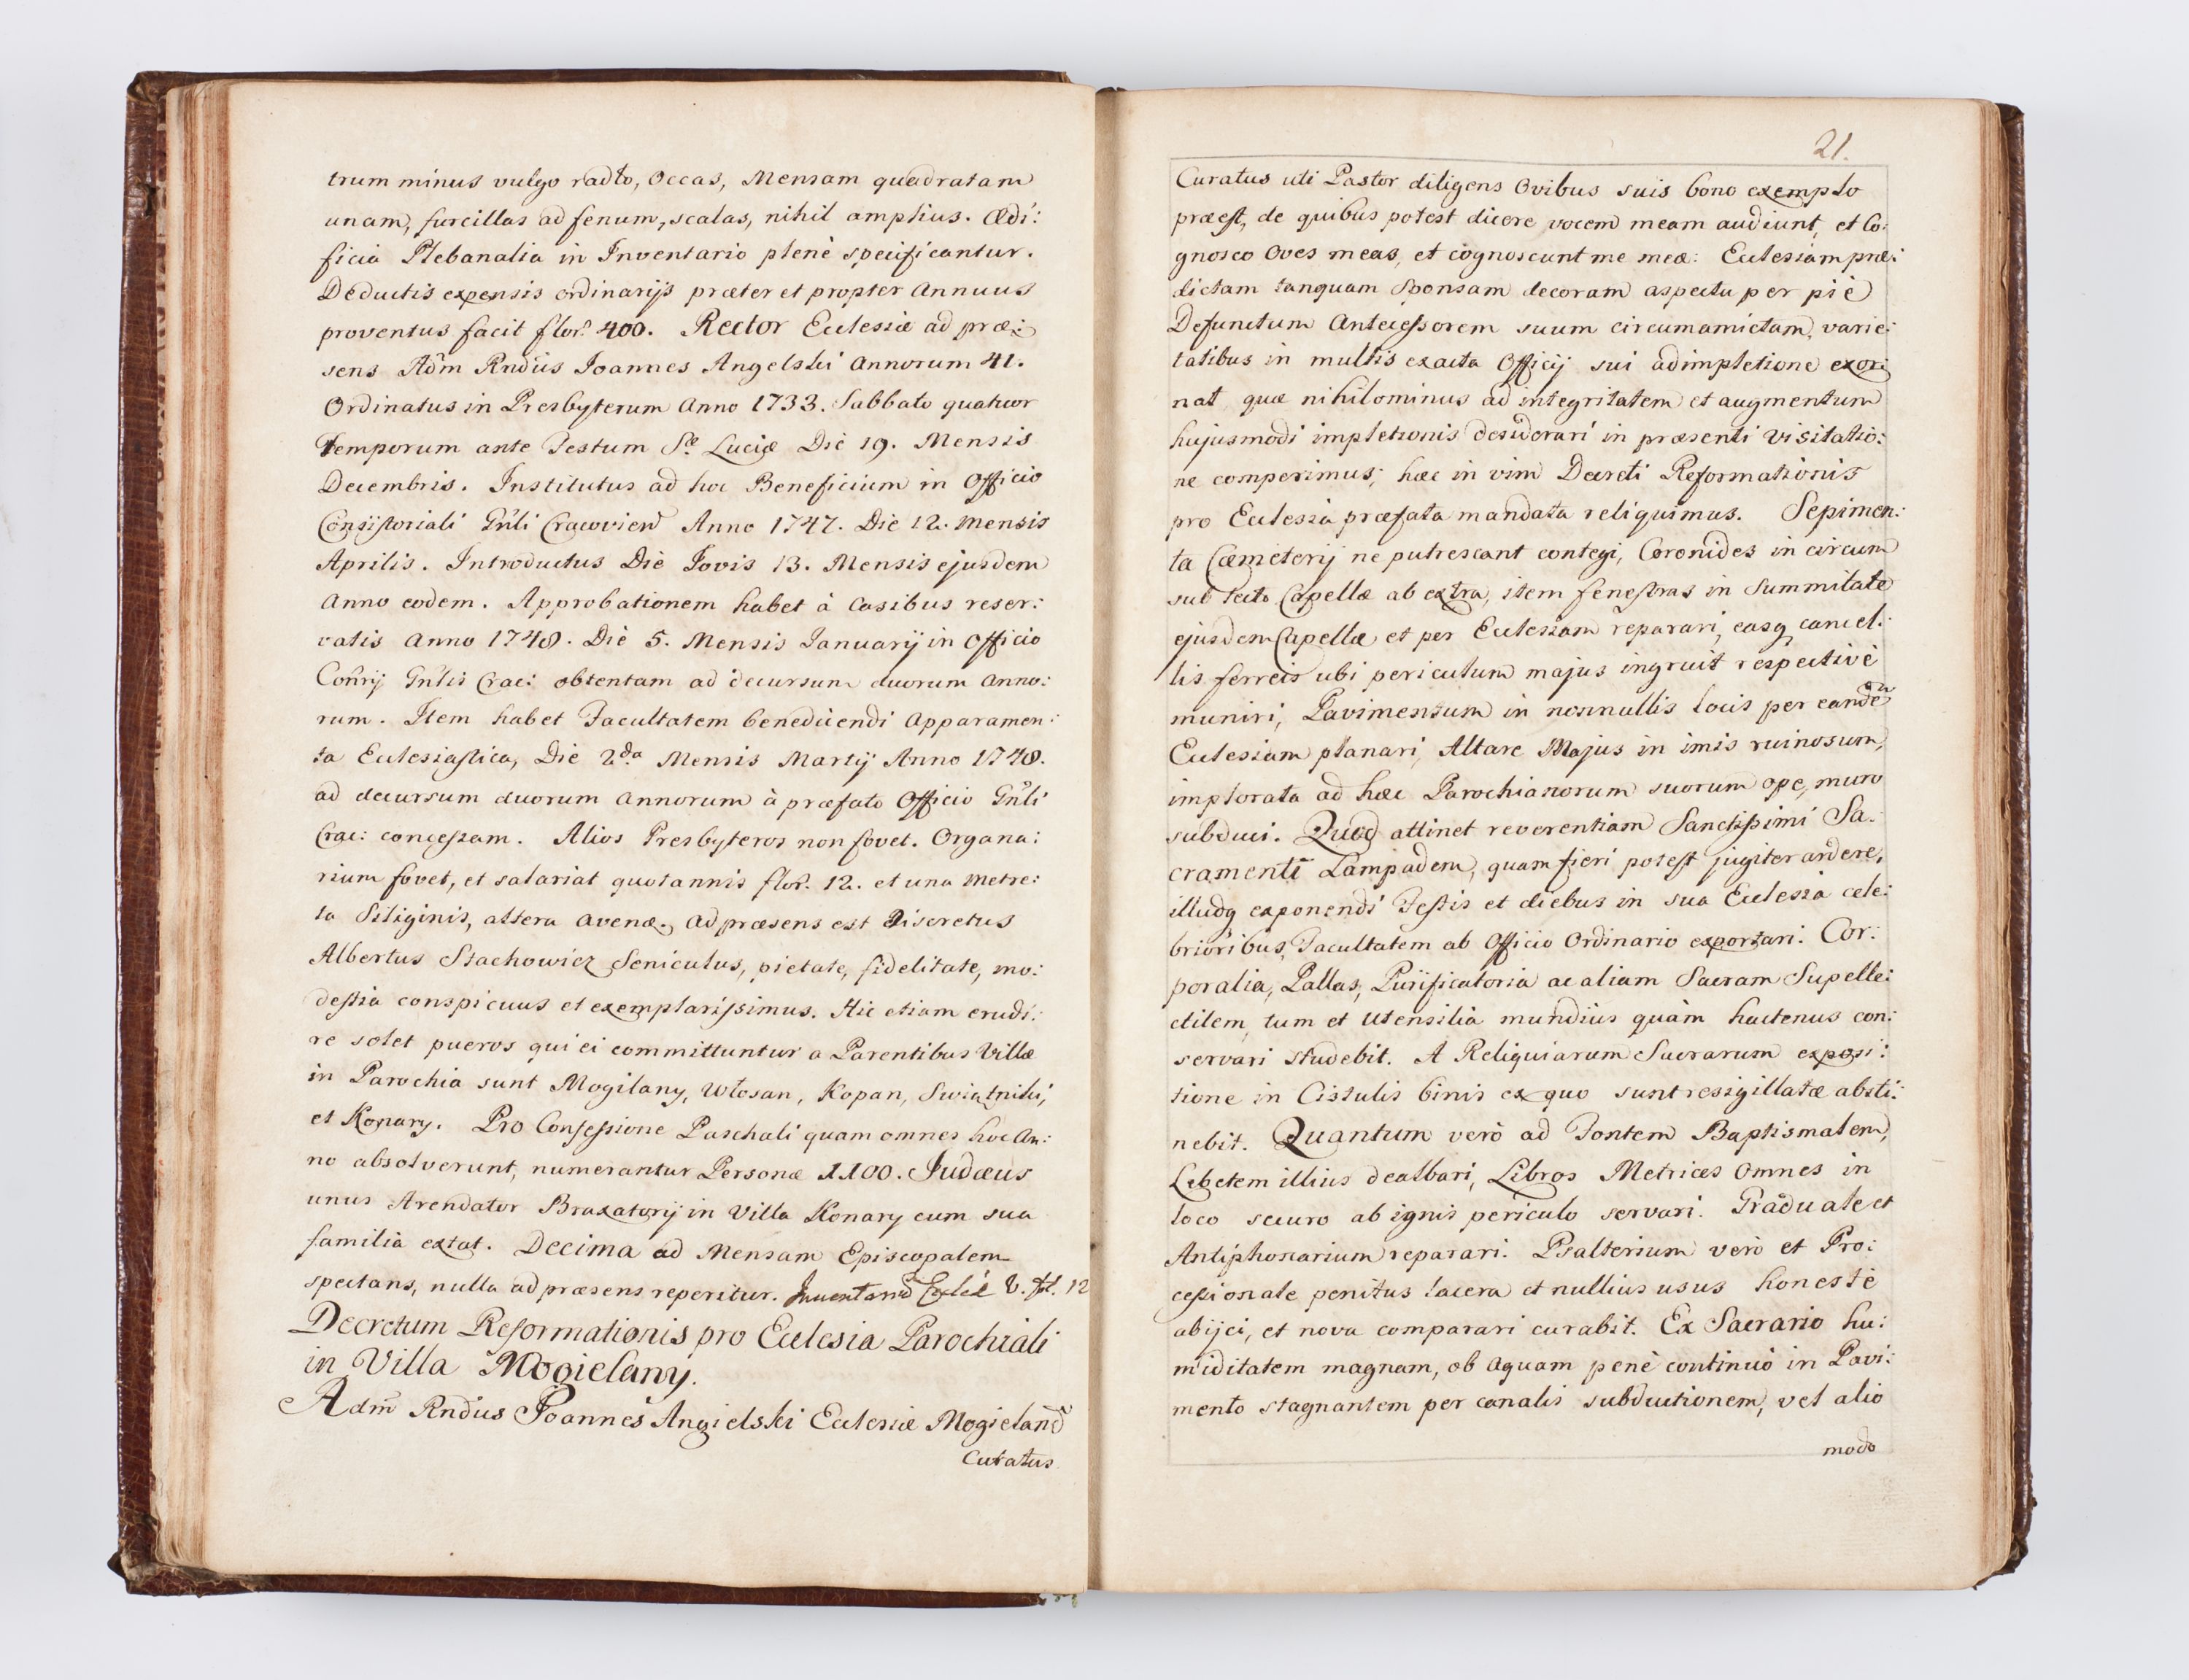 trum minus vulgo radło, Occas, Mensam quadratam
unam, furcillas ad fenum, scalas, nihil amplius. Ædi:
ficia Plebanalia in Inventario plenè specificantur.
Deductis expensis ordinarijs præter et propter Annuus
proventus facit flor: 400. Rector Ecclesiæ ad præ:
sens Adm̃ Rndus Joannes Angelski Annorum 41.
Ordinatus in Presbyterum Anno 1733. Sabbato quatuor
Temporum ante Festum S. Luciæ Die 19. Mensis
Decembris. Institutus ad hoc Beneficium in Officio
Consistoriali Gñli Cracovien Anno 1747. Die 12. Mensis
Aprilis. Introductus Die Jovis 13. Mensis ejusdem
Anno eodem. Approbationem habet à Casibus reser:
vatis Anno 1748. Die 5. Mensis Januarij in Officio
Coñrij Gñlis Crac: obtentam ad decursum duorum Anno:
rum. Item habet Facultatem benedicendi Apparamen:
ta Ecclesiastica, Die 2da Mensis Martij Anno 1748.
ad decursum duorum Annorum à præfato Officio Gñli
Crac: concessam. Alios Presbyteros non fovet. Organa:
rium fovet, et salariat quotannis flor. 12. et una Metre:
ta Siliginis, altera Avenæ. Ad præsens est Discretus
Albertus Stachowicz Seniculus, pietate, fidelitate, mo:
destia conspicuus et exemplarissimus. Hic etiam erudi:
re solet pueros qui ei committuntur a Parentibus Villæ
in Parochia sunt Mogilany, Włosan, Kopan, Swiątniki,
et Konary. Pro Confessione Paschali quam omnes hoc An:
no absolverunt, numerantur Personæ 1100. Judæus
unus Arendator Braxatorij in Villa Konary cum sua
familia extat. Decima ad Mensam Episcopalem
spectans, nulla ad præsens reperitur. Inventariũ Ecclæ V. fol. 12
Decretum Reformationis pro Ecclesia Parochiali
in Villa Mogielany.
Adm̃ Rndus Joannes Angielski Ecclesiæ Mogielanñ
Curatus
21.
Curatus uti Pastor diligens Ovibus suis bono exemplo
præest, de quibus potest dicere vocem meam audiunt, et Co:
gnosco Oves meas, et cognoscunt me meæ: Ecclesiam præ:
dictam tanquam Sponsam decoram aspectu per piè
Defunctum Antecessorem suum circumamictam, varie:
tatibus in multis exacta Officij sui adimpletione exor:
nat quæ nihilominus ad integritatem et augmentum
hujusmodi impletionis desiderari in præsenti Visitatio:
ne comperimus, hæc in vim Decreti Reformationis
pro Ecclesia præfata mandata reliquimus. Sepimen:
ta Cæmeterij ne putrescant contegi, Coronides in circum
sub tecto Capellæ ab extra, item fenestras in Summitate
ejusdem Capellæ et per Ecclesiam reparari, easq cancel:
lis ferreis ubi periculum majus ingruit respectivè
muniri, Pavimentum in nonnullis locis per eandẽ
Ecclesiam planari, Altare Majus in imis ruinosum,
implorata ad hæc Parochianorum suorum ope, muro
subduci. Quod attinet reverentiam Sanctissimi Sa:
cramenti Lampadem, quam fieri potest jugiter ardere,
illudq exponendi Festis et diebus in sua Ecclesia cele:
brioribus, Facultatem ab Officio Ordinario exportari. Cor:
poralia, Pallas, Purificatoria ac aliam Sacram Supelle:
ctilem, tum et Utensilia mundius quàm hactenus con:
servari studebit. A Reliquiarum Sacrarum exposi:
tione in Cistulis binis ex quo sunt resigillatæ absti:
nebit. Quantum verò ad Fontem Baptismalem,
Lebetem illius dealbari, Libros Metrices Omnes in
loco securo ab ignis periculo servari. Graduale et
Antiphonarium reparari. Psalterium verò et Pro:
cessionale penitus lacera et nullius usus honestè
abijci, et nova comparari curabit. Ex Sacrario hu:
miditatem magnam, ob Aquam penè continuò in Pavi:
mento stagnantem per canalis subductionem, vel alio
modo